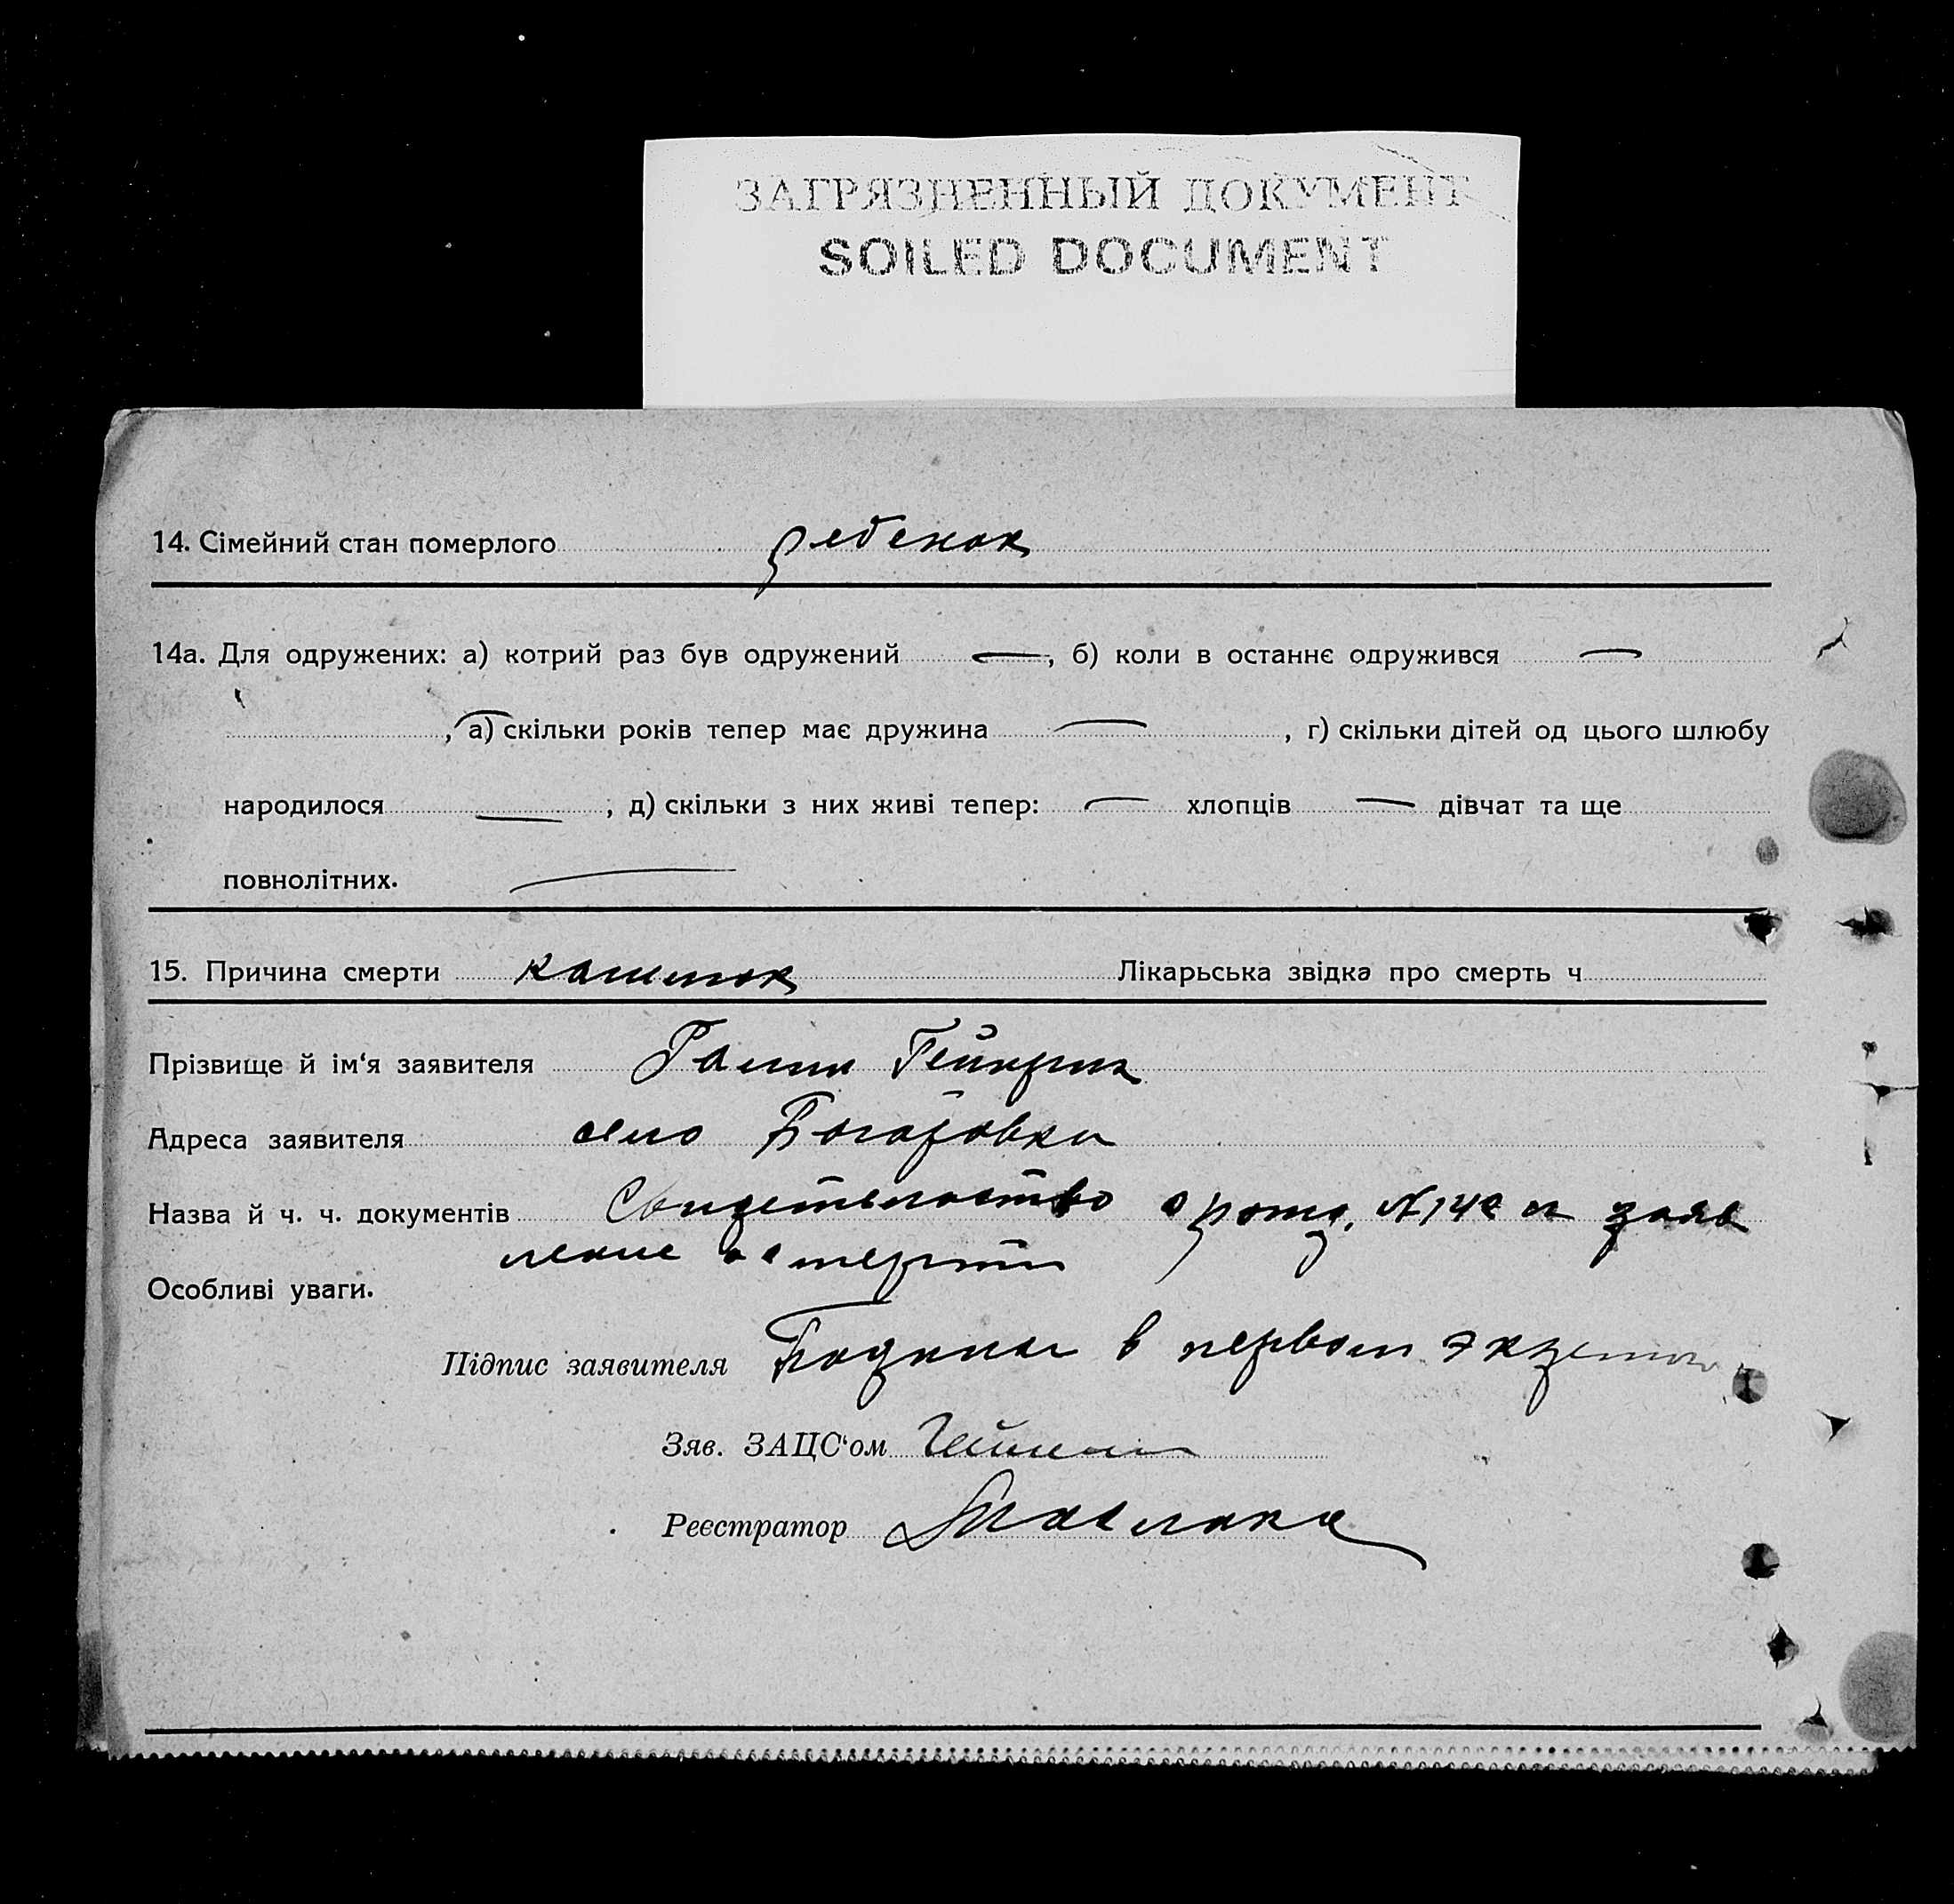 ЗАГРЯЗНЕННЫЙ ДОКУМЕНТ
SOILED DOCUMENT
14. Сімейний стан померлого ребенок
14а. Для одружених: а) котрий раз був одружений —, б) коли в останнє одружився —
, а) скільки років тепер має дружина — , г) скільки дітей од цього шлюбу
народилося — ; д) скільки з них живі тепер: — хлопців — дівчат та ще
повнолітних. —
15. Причина смерти кашток Лікарьська звідка про смерть ч
Прізвище й ім‘я заявителя Гейнрих
Адреса заявителя село
Назва й ч. ч. документів Свидетельство о рожд. N 148 и заяв
ление о смерти
Особливі уваги.
Підпис заявителя Подписал в первом экземп
Зяв. ЗАЦС‘ом
Реєстратор